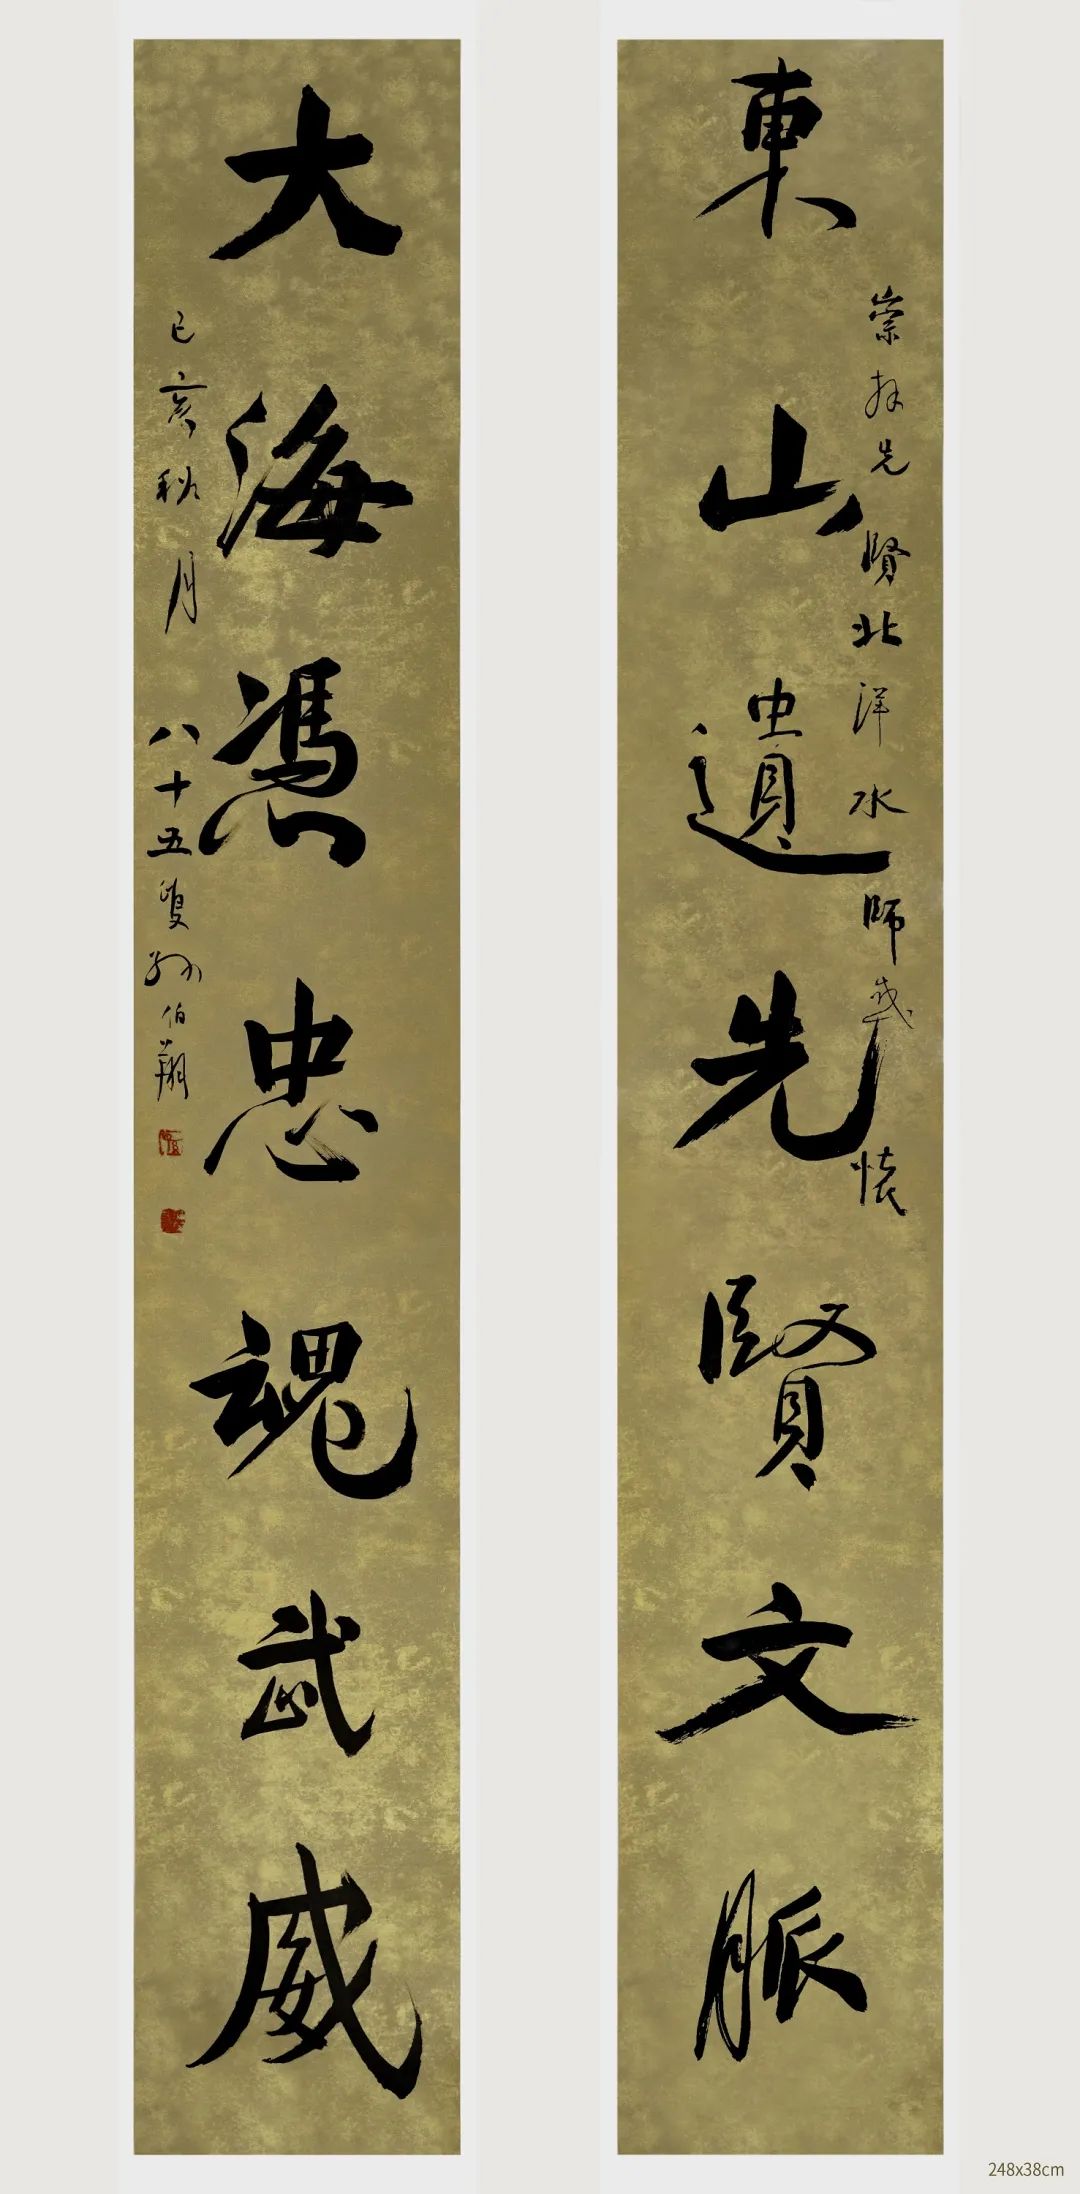 東山遺先賢文脈
崇拜先賢北洋水師感懷
大海憑忠魂武威
己亥秋月八十五叟孫伯翔
248x38cm